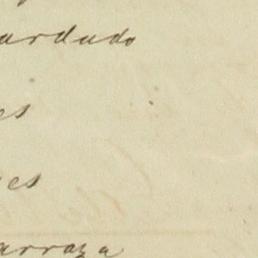 ardudo
es
es
arraza